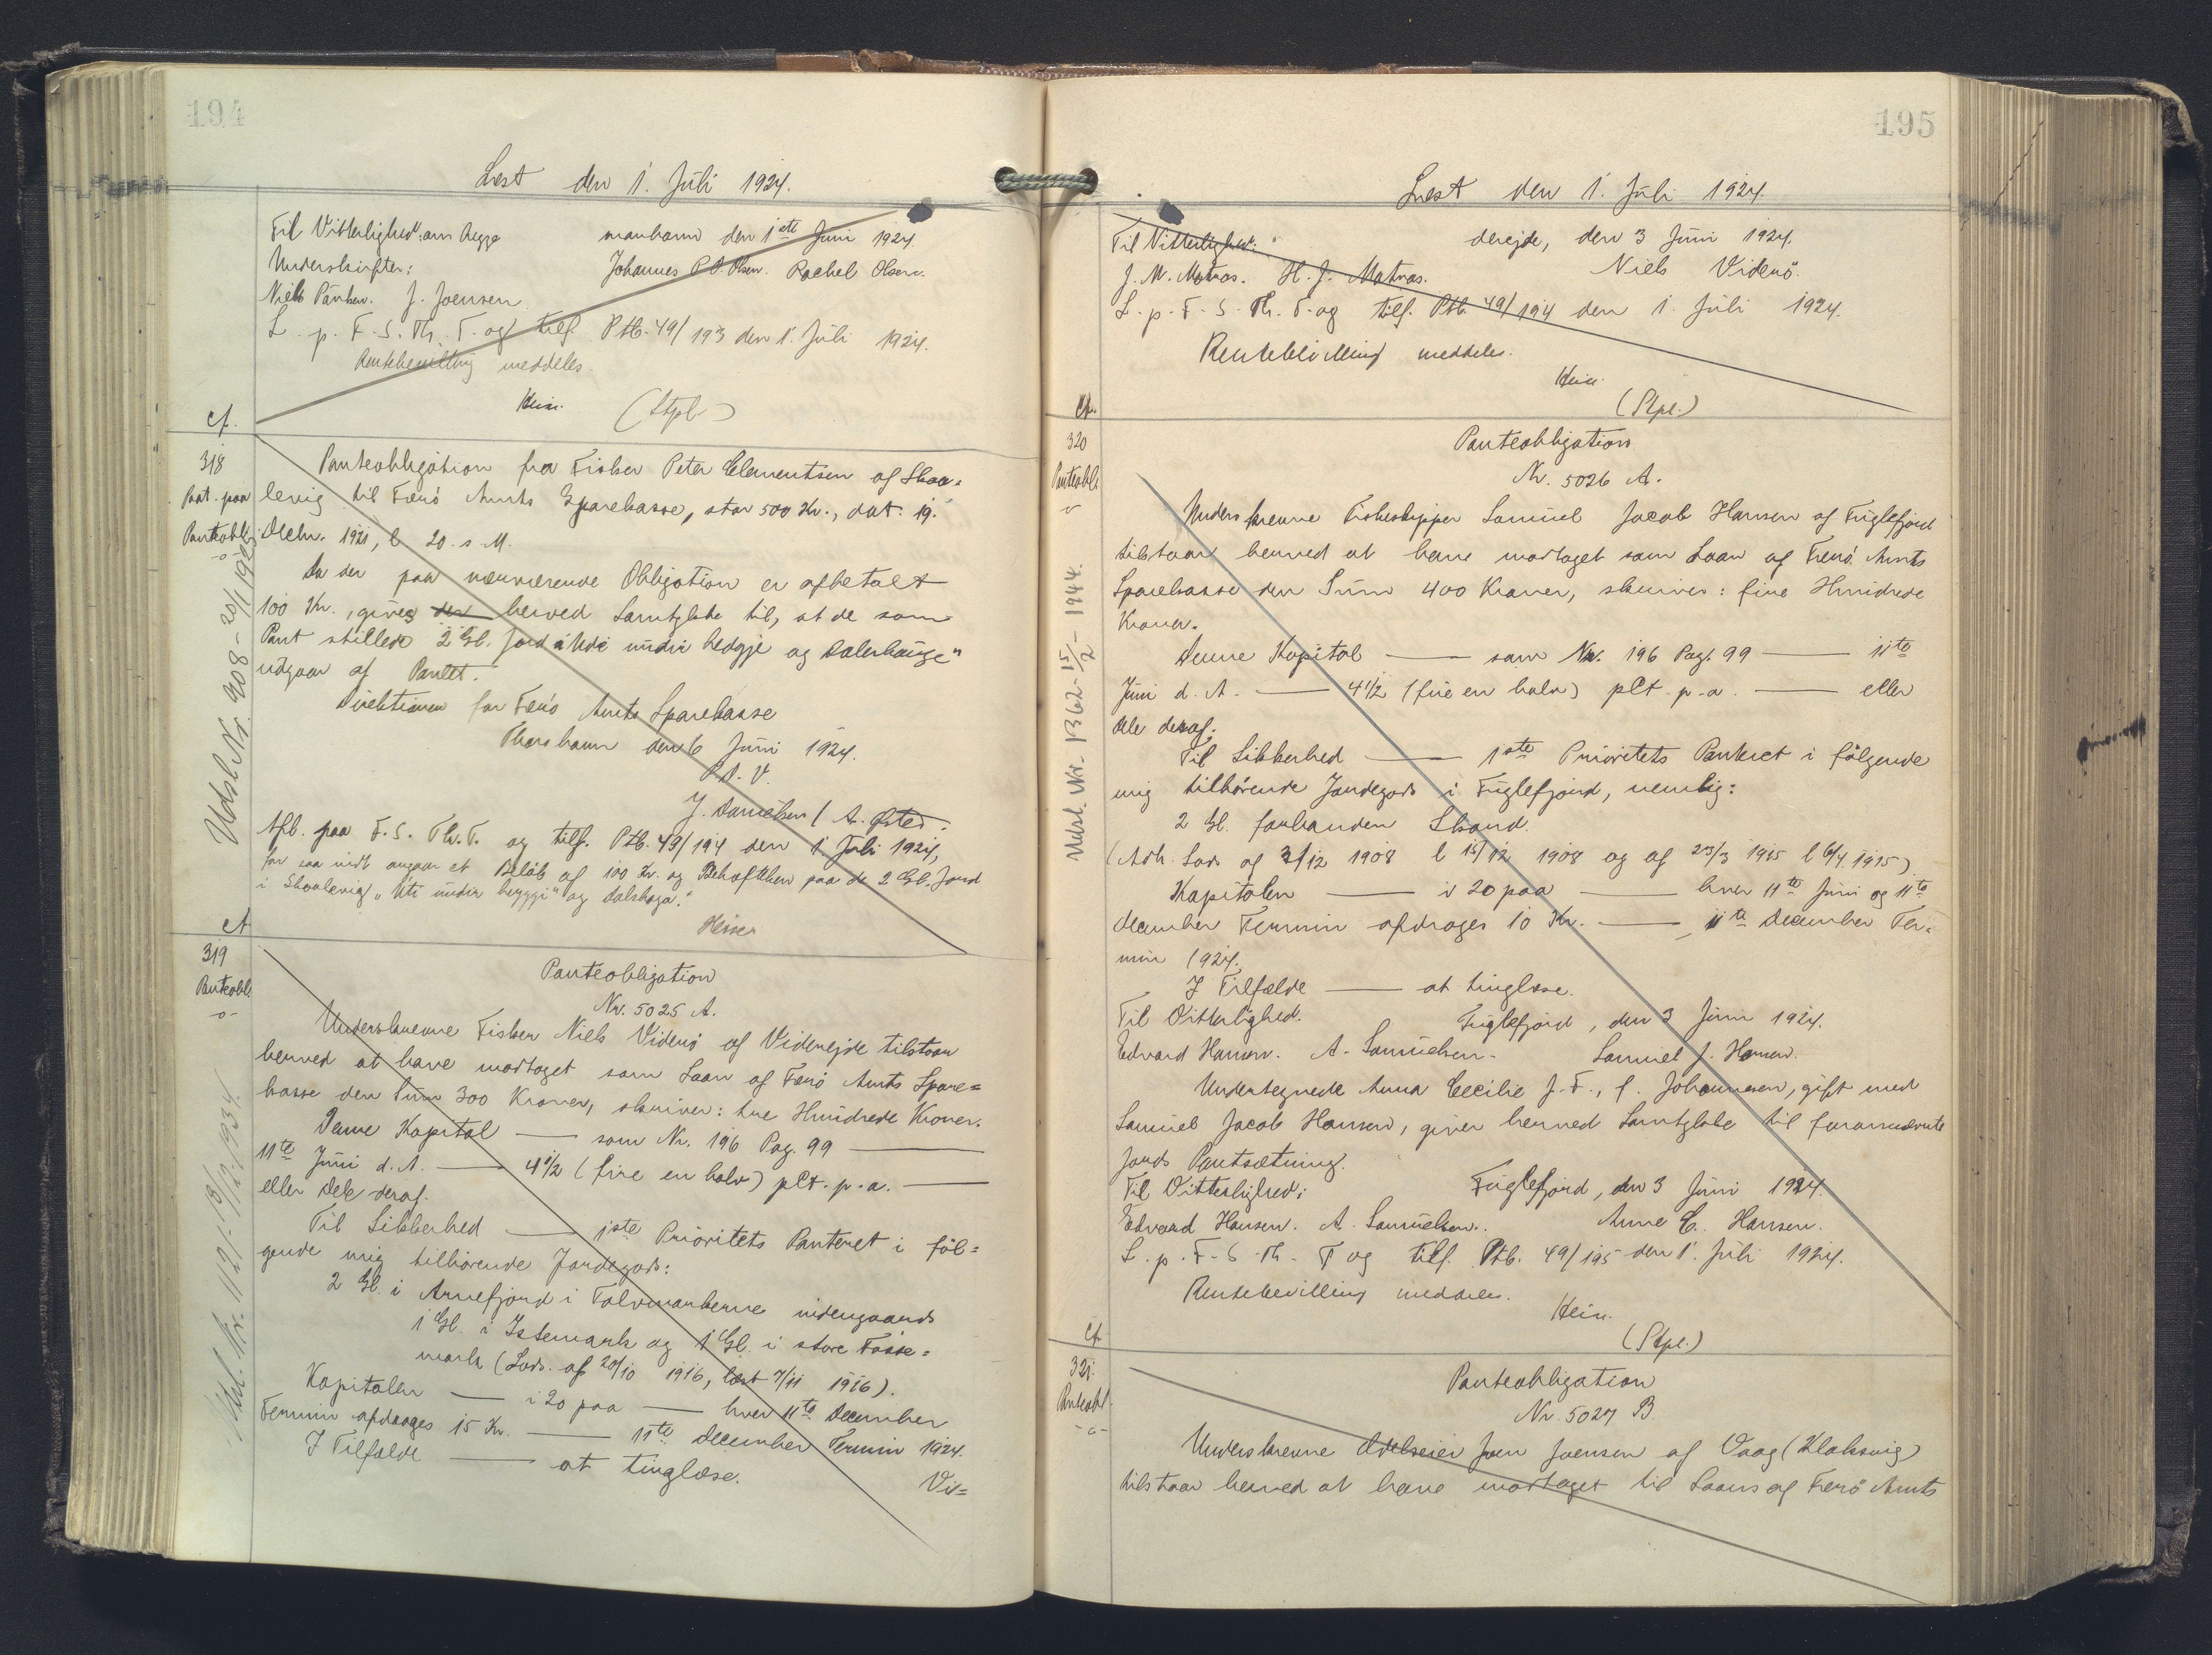 194
Læst den 1. Juli 1924.
Til Vitterlighed om begge
manhavn den 1ste Juni 1924.
Underskrifter:
Johannes P. D. Olsen. Rachel Olsen.
Niels Poulsen. J. Joensen
L. p. F. S. Th. T. og tilf. Ptb. 49/193 den 1. Juli 1924.
Rentebevilling meddeles.
Heise.
(Stpl.)
cf.
318
Paat. paa
Panteobl.
-o-
Panteobligation fra Fisker Peter Clementsen af Skaa=
levig til Færø Amts Sparekasse, stor 500 Kr., dat. 19.
Decbr. 1921, l 20. s. M.
Da der paa nærværende Obligation er afbetalt
100 Kr., gives den herved Samtykke til, at de som
Pant stillede 2 Gl. Jord á Uti undir heygje og Dalerhauge"
udgaar af Pantet.
Direktionen for Færø Amts Sparekasse
Thorshavn den 6 Juni 1924.
P. D. V.
J. Danielsen / A. Østed.
Afl. paa F. S. Th. T. og tilf. Ptb. 49/194 den 1. Juli 1924,
for saa vidt angaar et Beløb af 100 Kr. og Behæftelsen paa de 2 Gl. Jord
i Skaalevig „Uti undir heyggi" og Dalshaga."
Heise
Udsl. Nr. 908 - 20/1 1925
cf
319
Panteobl.
-o-
Panteobligation
Nr. 5025 A.
Underskrevne Fisker Niels Viderø af Viderejde tilstaar
herved at have modtaget som Laan af Færø Amts Spare=
kasse den Sum 300 Kroner, skriver: tre Hundrede Kroner.
Denne Kapital — som Nr. 196 Pag. 99 —
11te Juni d. A. — 4 1/2 (fire en halv) pCt. p. a. —
eller Dele deraf.
Til Sikkerhed — 1ste Prioritets Panteret i føl=
gende mig tilhørende Jordegods:
2 Gl. i Arnefjord i Tolvmarkerne nidengaards
1 Gl. i Istemark og 1 Gl. i store Fosse=
mark (Lods. af 20/10 1916, læst 7/11 1916).
Kapitalen — i 20 paa — hver 11te December
Termin afdrages 15 Kr. — 11te December Termin 1924.
I Tilfælde — at tinglæse.
Vi=
Udsl. Nr. 1121 - 13/12 1934.
195
Læst den 1. Juli 1924.
Til Vitterlighed:
derejde, den 3 Juni 1924.
J. M. Matras. H. J. Matras.
Niels Viderø.
L. p. F. S. Th. T. og tilf. Ptb. 49/194 den 1. Juli 1924.
Rentebevilling meddeles.
Heise.
(Stpl.)
cf.
320
Panteobl.
-o-
Panteobligation
Nr. 5026 A.
Underskrevne Fiskeskipper Samuel Jacob Hansen af Fuglefjord
tilstaar herved at have modtaget som Laan af Færø Amts
Sparekasse den Sum 400 Kroner, skriver: fire Hundrede
Kroner.
Denne Kapital — som Nr. 196 Pag. 99 — 11te
Juni d. A. — 4 1/2 (fire en halv) pCt. p. a. — eller
Dele deraf.
Til Sikkerhed — 1ste Prioritets Panteret i følgende
mig tilhørende Jordegods i Fuglefjord, nemlig:
2 Gl. forhanden Skand.
(Adk. Lods af 2/12 1908 l 15/12 1908 og af 23/3 1915 l 6/4 1915).
Kapitalen — i 20 paa — hver 11te Juni og 11te
December Termin afdrages 10 Kr. — 11te December Ter=
min 1924.
I Tilfælde — at tinglæse.
Til Vitterlighed.
Fuglefjord, den 3 Juni 1924.
Edvard Hansen. A. Samuelsen.
Samuel J. Hansen.
Undertegnede Anna Cecilie J. F., f. Johannesen, gift med
Samuel Jacob Hansen, giver herved Samtykke til forannævnte
Jords Pantsætning.
Til Vitterlighed:
Fuglefjord, den 3 Juni 1924.
Edvard Hansen. A. Samuelsen.
Anne C. Hansen.
L. p. F. S. Th. T og tilf. Ptb. 49/195 den 1. Juli 1924.
Rentebevilling meddeles.
Heise.
(Stpl.)
Udsl. Nr. 1362 - 15/2 - 1944.
cf
321.
Panteobl.
-o-
Panteobligation
Nr. 5027 B.
Underskrevne Odelseier Joen Joensen af Vaag (Klaksvig)
tilstaar herved at have modtaget til Laans af Færø Amts